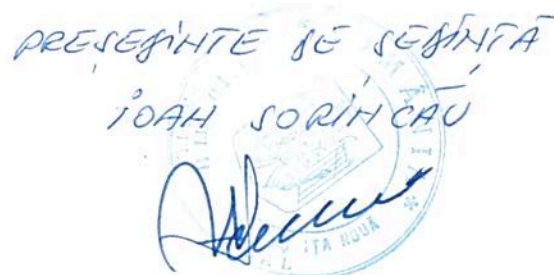 PREȘEDINTE DE ȘEDINȚĂ
IOAN SORINCĂU
ITA NOUĂ